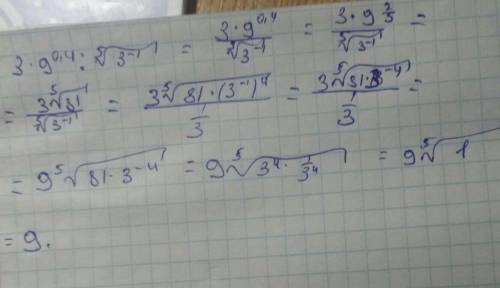 3 · 9^{0,4} : \sqrt[5]{3^{-1}} = \frac{3 · 9^{0,4}}{\sqrt[5]{3^{-1}}} = \frac{3 · 9^{\frac{2}{5}}}{\sqrt[5]{3^{-1}}} =
= \frac{3\sqrt[5]{81}}{\sqrt[5]{3^{-1}}} = \frac{3\sqrt[5]{81 · (3^{-1})^4}}{\frac{1}{3}} = \frac{3\sqrt[5]{81 · 3^{-4}}}{\frac{1}{3}} =
= 9\sqrt[5]{81 · 3^{-4}} = 9\sqrt[5]{3^4 · \frac{1}{3^4}} = 9\sqrt[5]{1}
= 9.